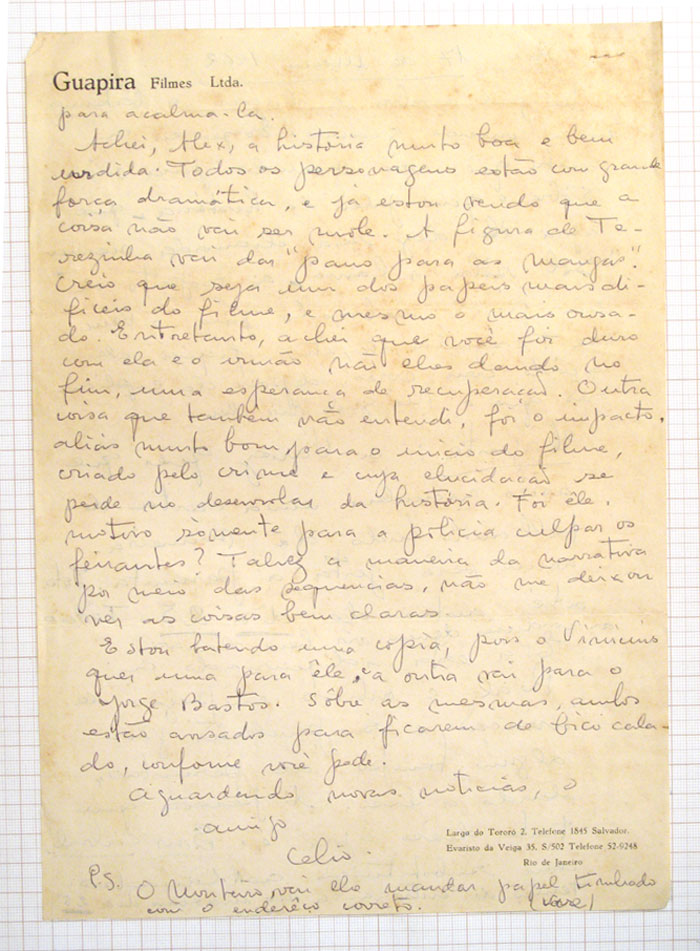 Guapira Filmes Ltda.
para acalma-la.
Achei, Alex, a história muito boa e bem
urdida. Todos os personagens estão com grande
força dramática, e já estou vendo que a
coisa não vai ser mole. A figura de Te-
rezinha vai dar "pano para as mangas".
Creio que seja um dos papeis mais di-
ficeis do filme, e mesmo o mais ousa-
do. Entretanto, achei que você foi duro
com ela e o irmão não lhes dando no
fim, uma esperança de recuperação. Outra
coisa que também não entendi, foi o impacto,
aliás muito bom, para o inicio do filme,
criado pelo crime e cuja elucidação se
perde no desenrolar da história. Foi êle
motivo sòmente para a policia culpar os
feirantes? Talvez a maneira da narrativa
por meio das sequencias, não me deixou
vêr as coisas bem claras.
Estou batendo uma cópia, pois o Vinicius
quer uma para êle, e a outra vai para o
Jorge Bastos. Sôbre as mesmas, ambos
estão avisados para ficarem de bico cala-
do, conforme você pede.
Aguardando novas noticias, o
amigo
Celio.
Largo do Tororó 2. Telefone 1845 Salvador.
Evaristo da Veiga 35. S/502 Telefone 52-9248
Rio de Janeiro
P.S. O Monteiro vai lhe mandar papel timbrado
com o enderêço correto.